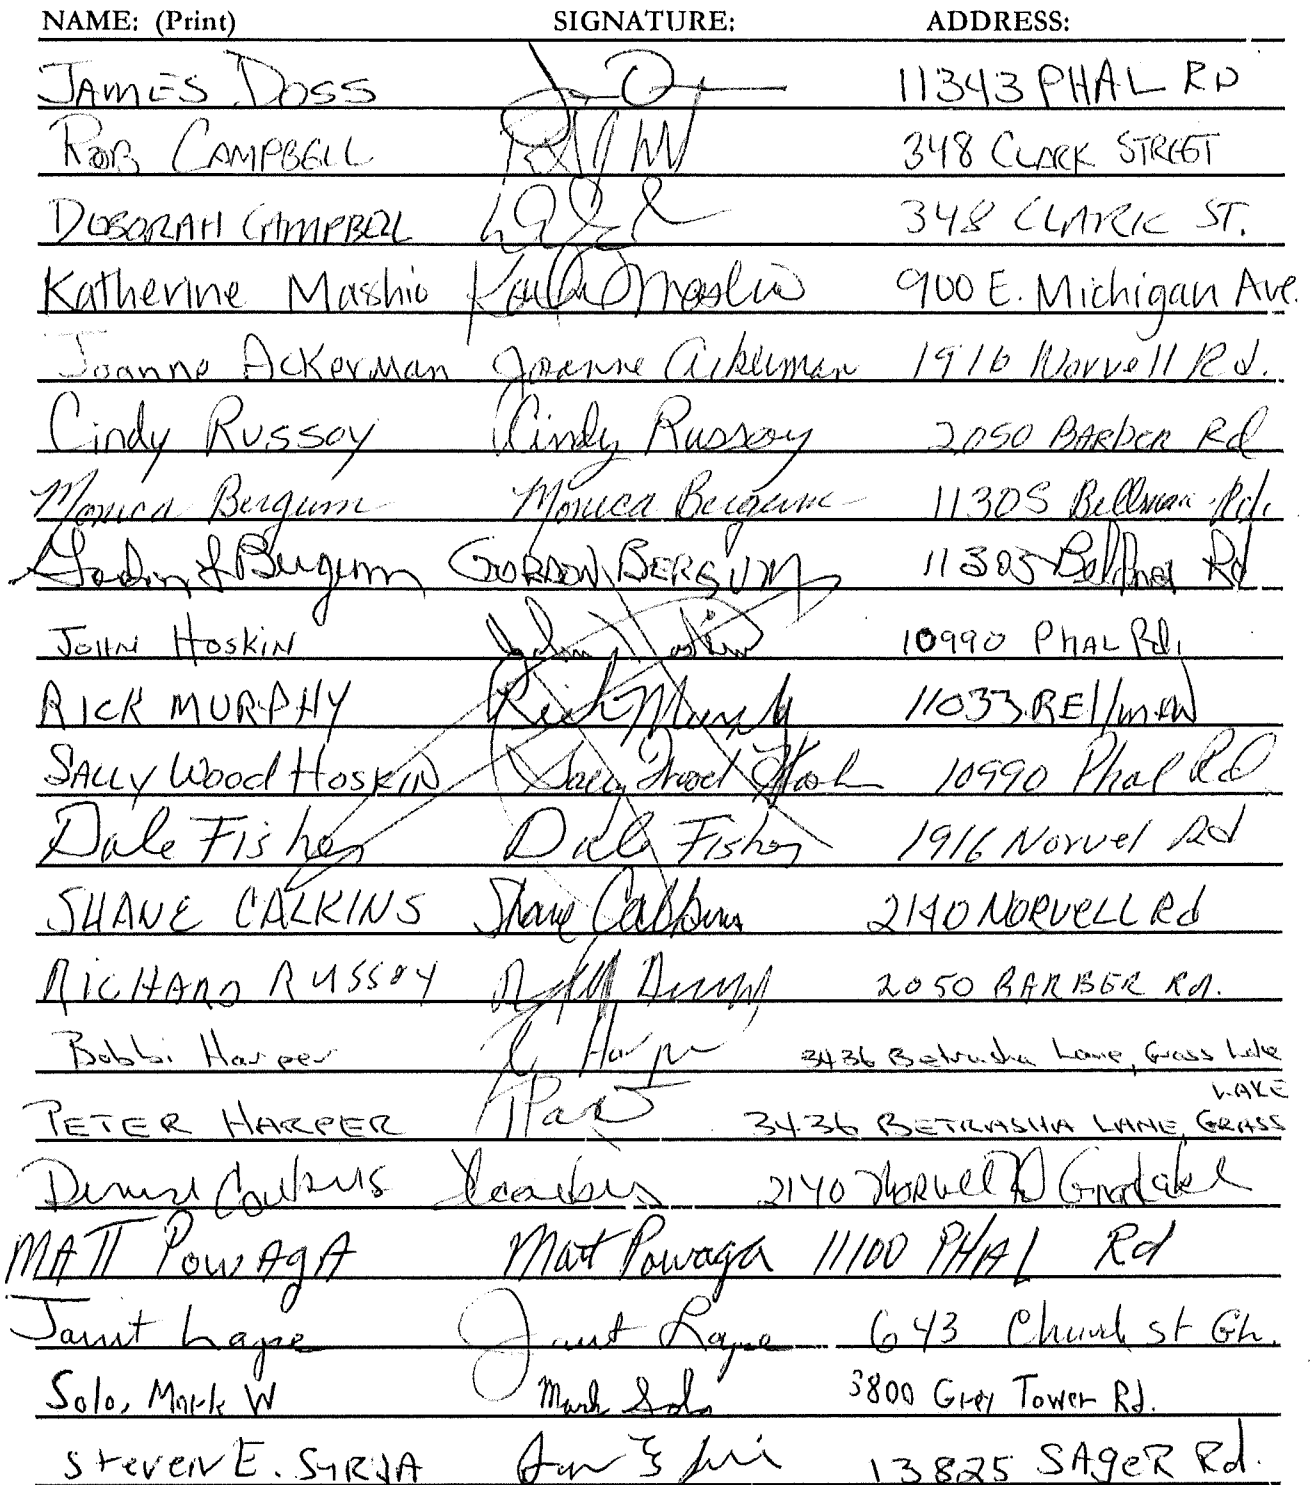 NAME: (Print) SIGNATURE: ADDRESS:
JAMES DOSS 11343 PHAL RD
ROB CAMPBELL 348 CLARK STREET
DEBORAH CAMPBELL 348 CLARK ST.
Katherine Mashio 900 E. Michigan Ave.
Joanne Ackerman Joanne Ackerman 1916 Norvell Rd.
Cindy Russoy Cindy Russoy 2050 BARBER Rd
Monica Bergum Monica Bergum 11305 Bellman Rd.
GORDON BERGUM 11305 Rd
JOHN HOSKIN John Hoskin 10990 PHAL Rd.
RICK MURPHY Rick Murphy 11033 BEllmAN
SALLY Wood HOSKIN Sally Wood 10990 Phal Rd
Dale Fisher Dale Fisher 1916 Norvel Rd
SHANE CALKINS Shane Calkins 2140 NORVELL Rd
RICHARD RUSSOY 2050 BARBER Rd.
Bobbi Harper Harper 3436 Betrasha Lane, Grass Lake
PETER HARPER 3436 BETRASHA LANE, GRASS LAKE
Denise Calkins 2140 Norvell Rd
MATT POWAGA Matt Powaga 11100 PHAL Rd
Janet Lape Janet Lape 643 Church st GL.
Solo, Mark W Mark Solo 3800 Grey Tower Rd.
Steven E. SYRJA 13825 SAgeR Rd.